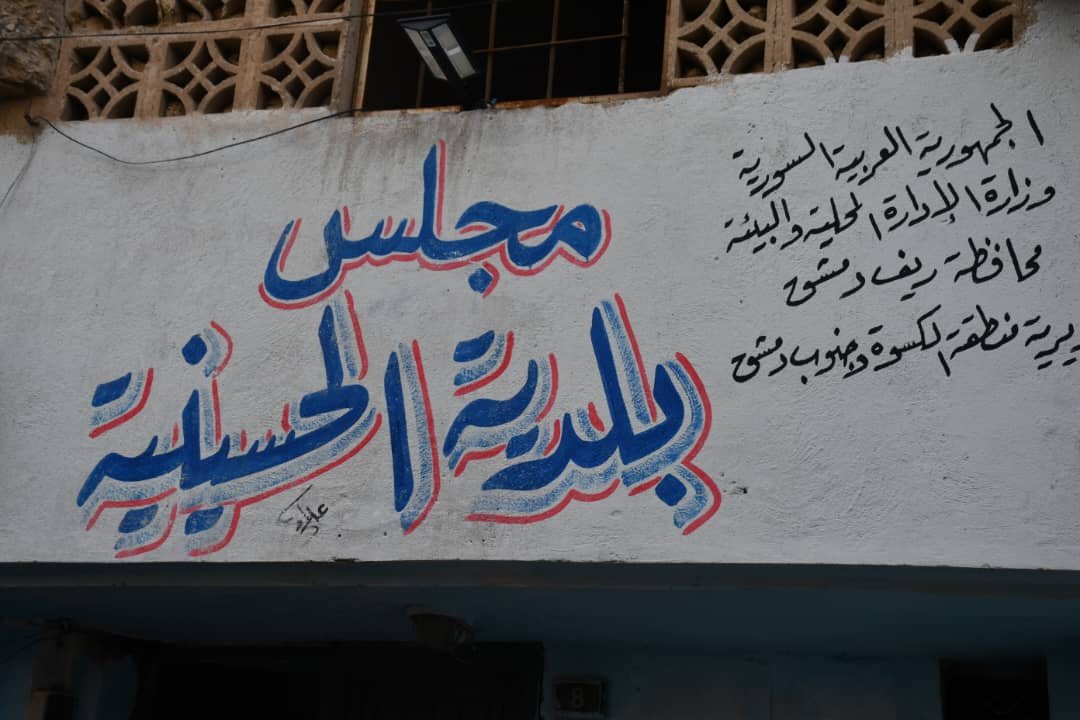 الجمهورية العربية السورية
وزارة الإدارة المحلية والبيئة
محافظة ريف دمشق
يرية منطقة الكسوة وجنوب دمشق
مجلس
بلدية الحسينية
8